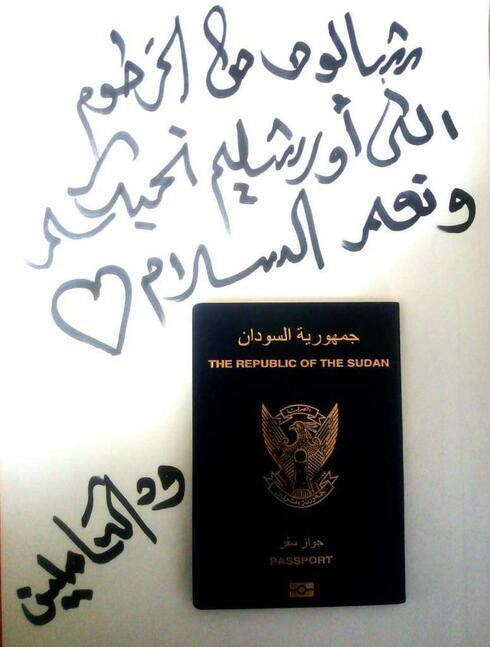 شالوم من الخرطوم
الى أورشليم
السلام
جمهورية السودان
THE REPUBLIC OF THE SUDAN
جواز سفر
PASSPORT
ود الكاملين